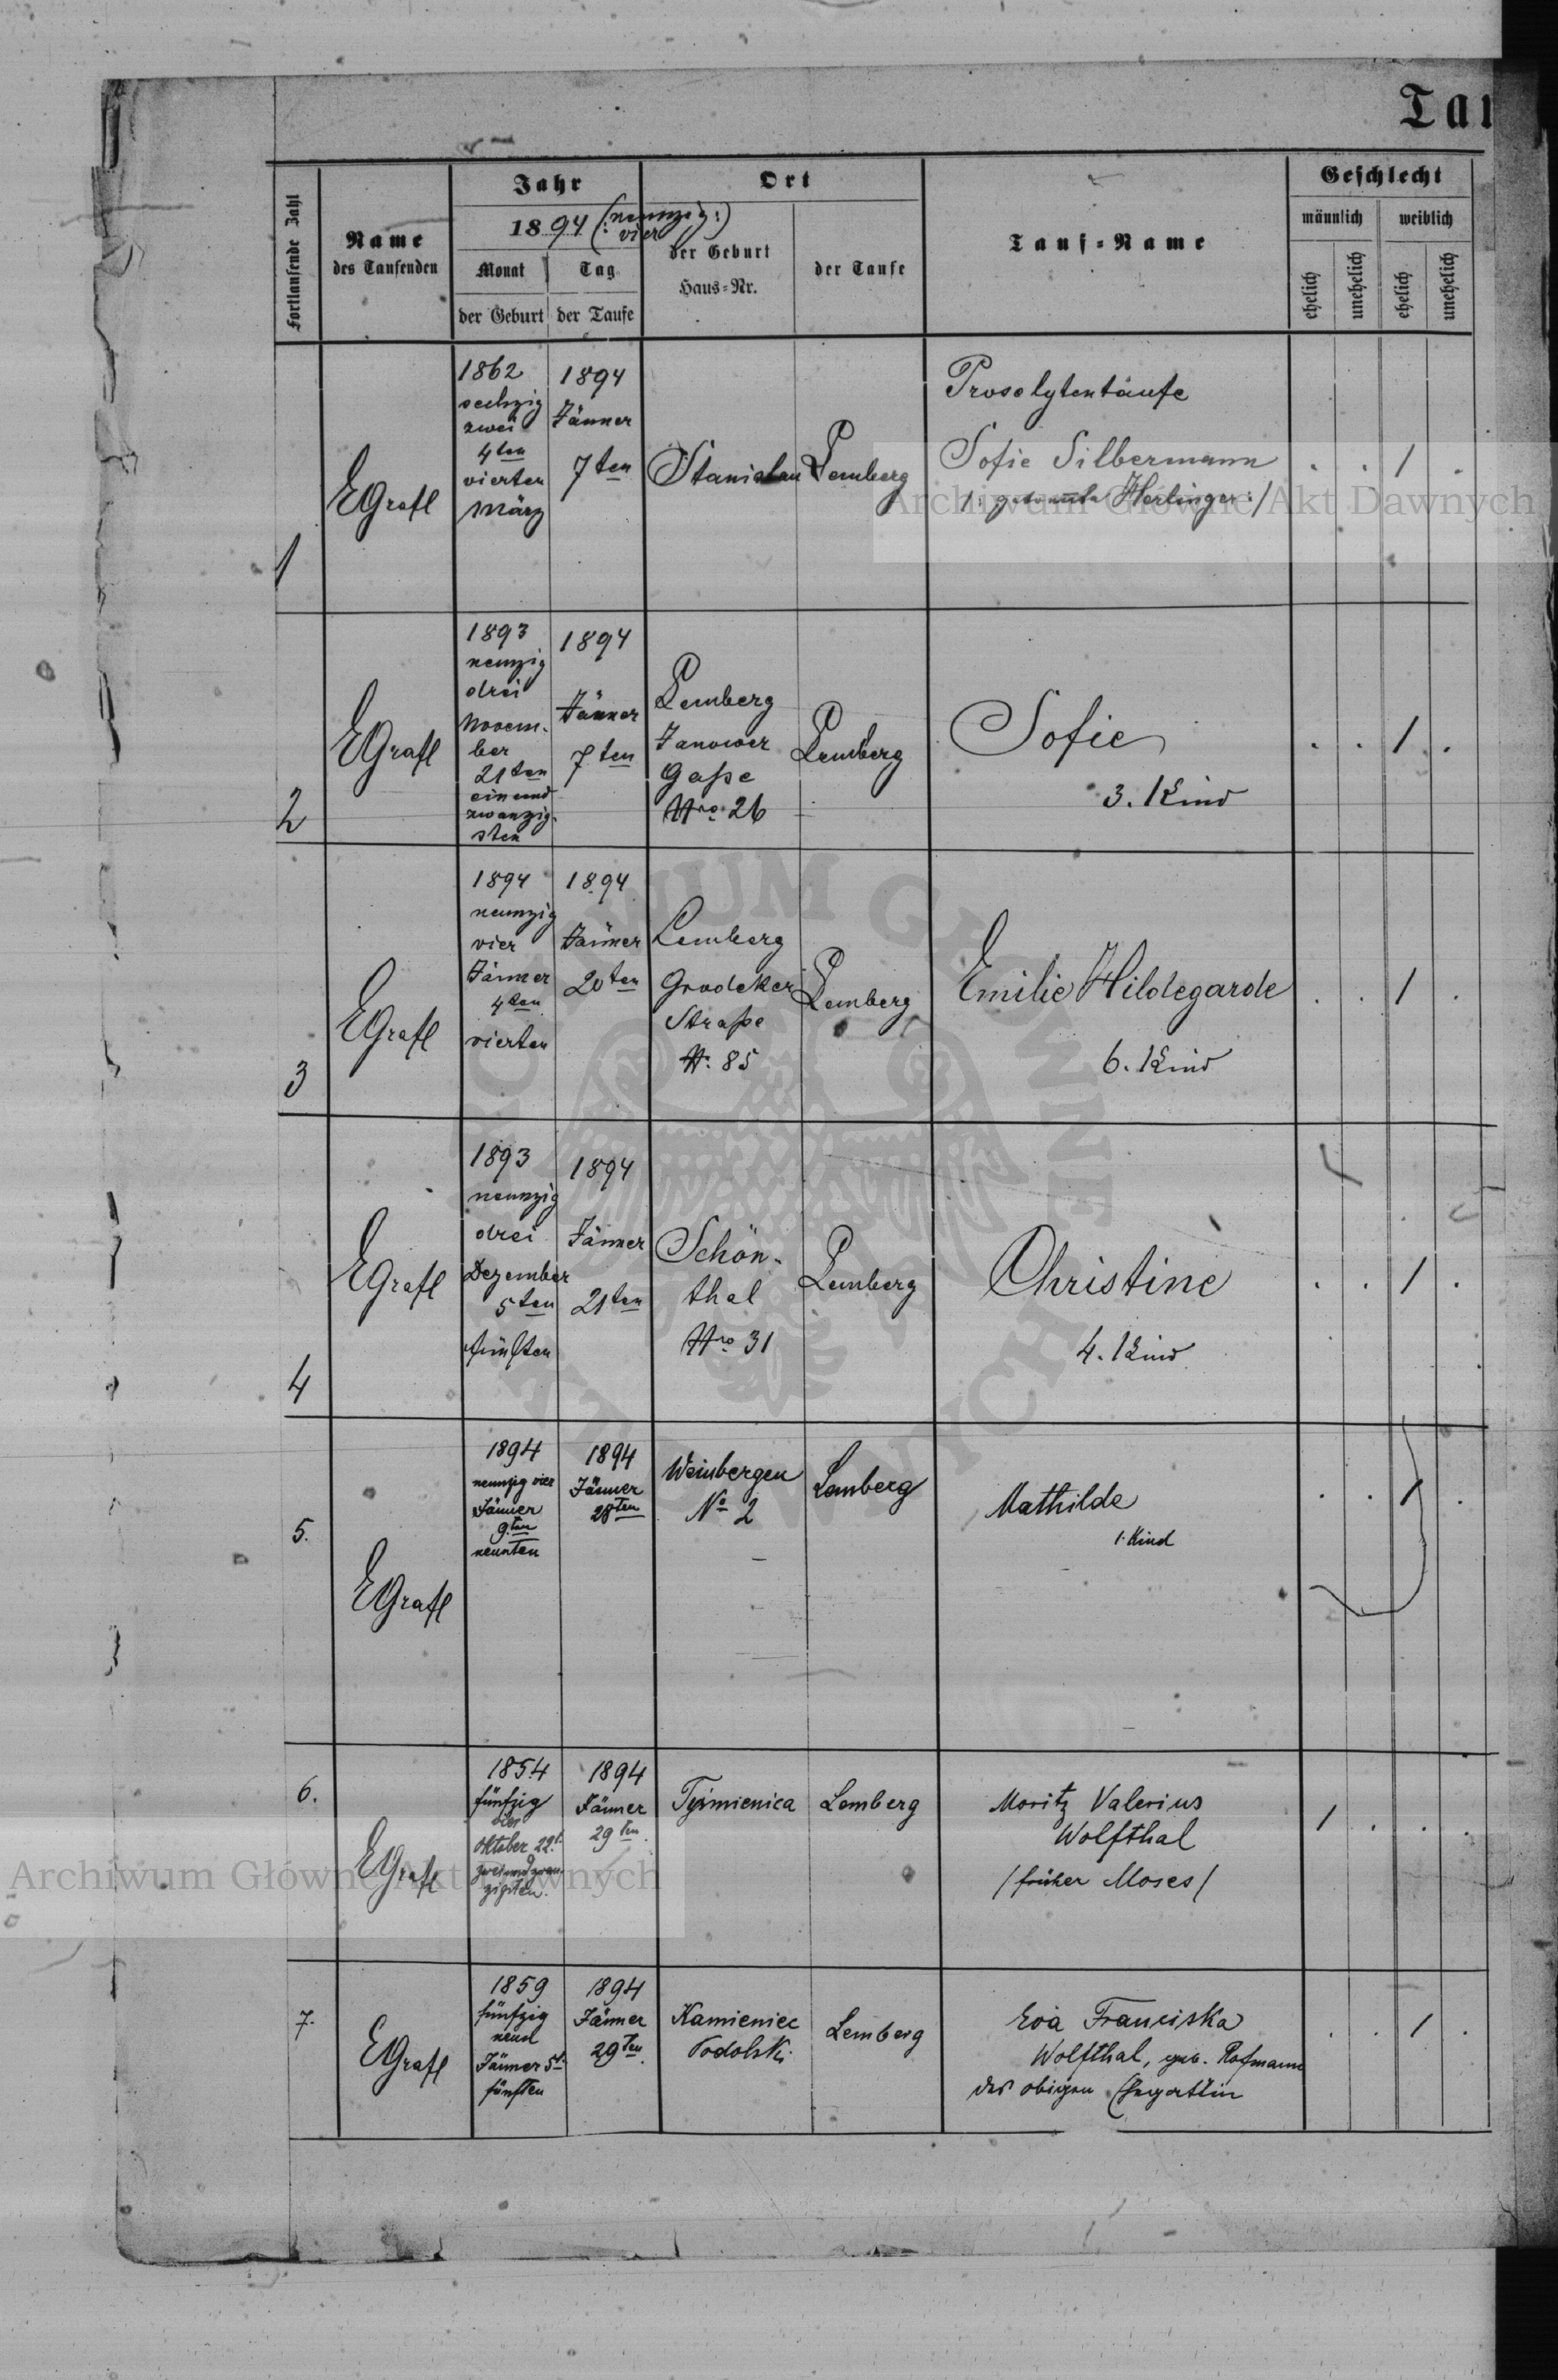 Tau
Fortlaufende Zahl
Name
des Taufenden
Jahr
1894 (: neunzig
vier :)
Monat
der Geburt
Tag
der Taufe
Ort
der Geburt
Haus-Nr.
der Taufe
Tauf-Name
Geschlecht
männlich
weiblich
ehelich
unehelich
ehelich
unehelich
1
EGrafl
1862
sechzig
zwei
4ten
vierten
März
1894
Jänner
7ten
Stanislau
Lemberg
Proselytentaufe
Sofie Silbermann
/: genannte Herlinger :/
. . 1 .
2
EGrafl
1893
neunzig
drei
Novem-
ber
21ten
einund
zwanzig-
sten
1894
Jänner
7ten
Lemberg
Janower
Gaße
Nro 26
Lemberg
Sofie
3. Kind
. . 1 .
3
EGrafl
1894
neunzig
vier
Jänner
4ten
vierten
1894
Jänner
20ten
Lemberg
Grodeker
Straße
N: 85
Lemberg
Emilie Hildegarde
6. Kind
. . 1 .
4
EGrafl
1893
neunzig
drei
Dezember
5ten
fünften
1894
Jänner
21ten
Schön-
thal
Nro 31
Lemberg
Christine
4. Kind
. . 1 .
5.
EGrafl
1894
neunzig vier
Jänner
9.ten
neunten
1894
Jänner
28ten
Weinbergen
No 2
Lemberg
Mathilde
1. Kind
. . 1 .
6.
EGrafl
1854
fünfzig
vier
Oktober 22t.
zweiundzwan-
zigsten.
1894
Jänner
29ten.
Tyśmienica
Lemberg
Moritz Valerius
Wolfthal
/früher Moses/
1 . . .
7.
EGrafl
1859
fünfzig
neun
Jänner 5t.
fünften
1894
Jänner
29ten.
Kamieniec
Podolski
Lemberg
Eva Franciska
Wolfthal, geb. Rofmann
des obigen Ehegattin
. . 1 .
Archiwum Główne Akt Dawnych
Archiwum Główne Akt Dawnych
ARCHIWUM GŁÓWNE AKT DAWNYCH